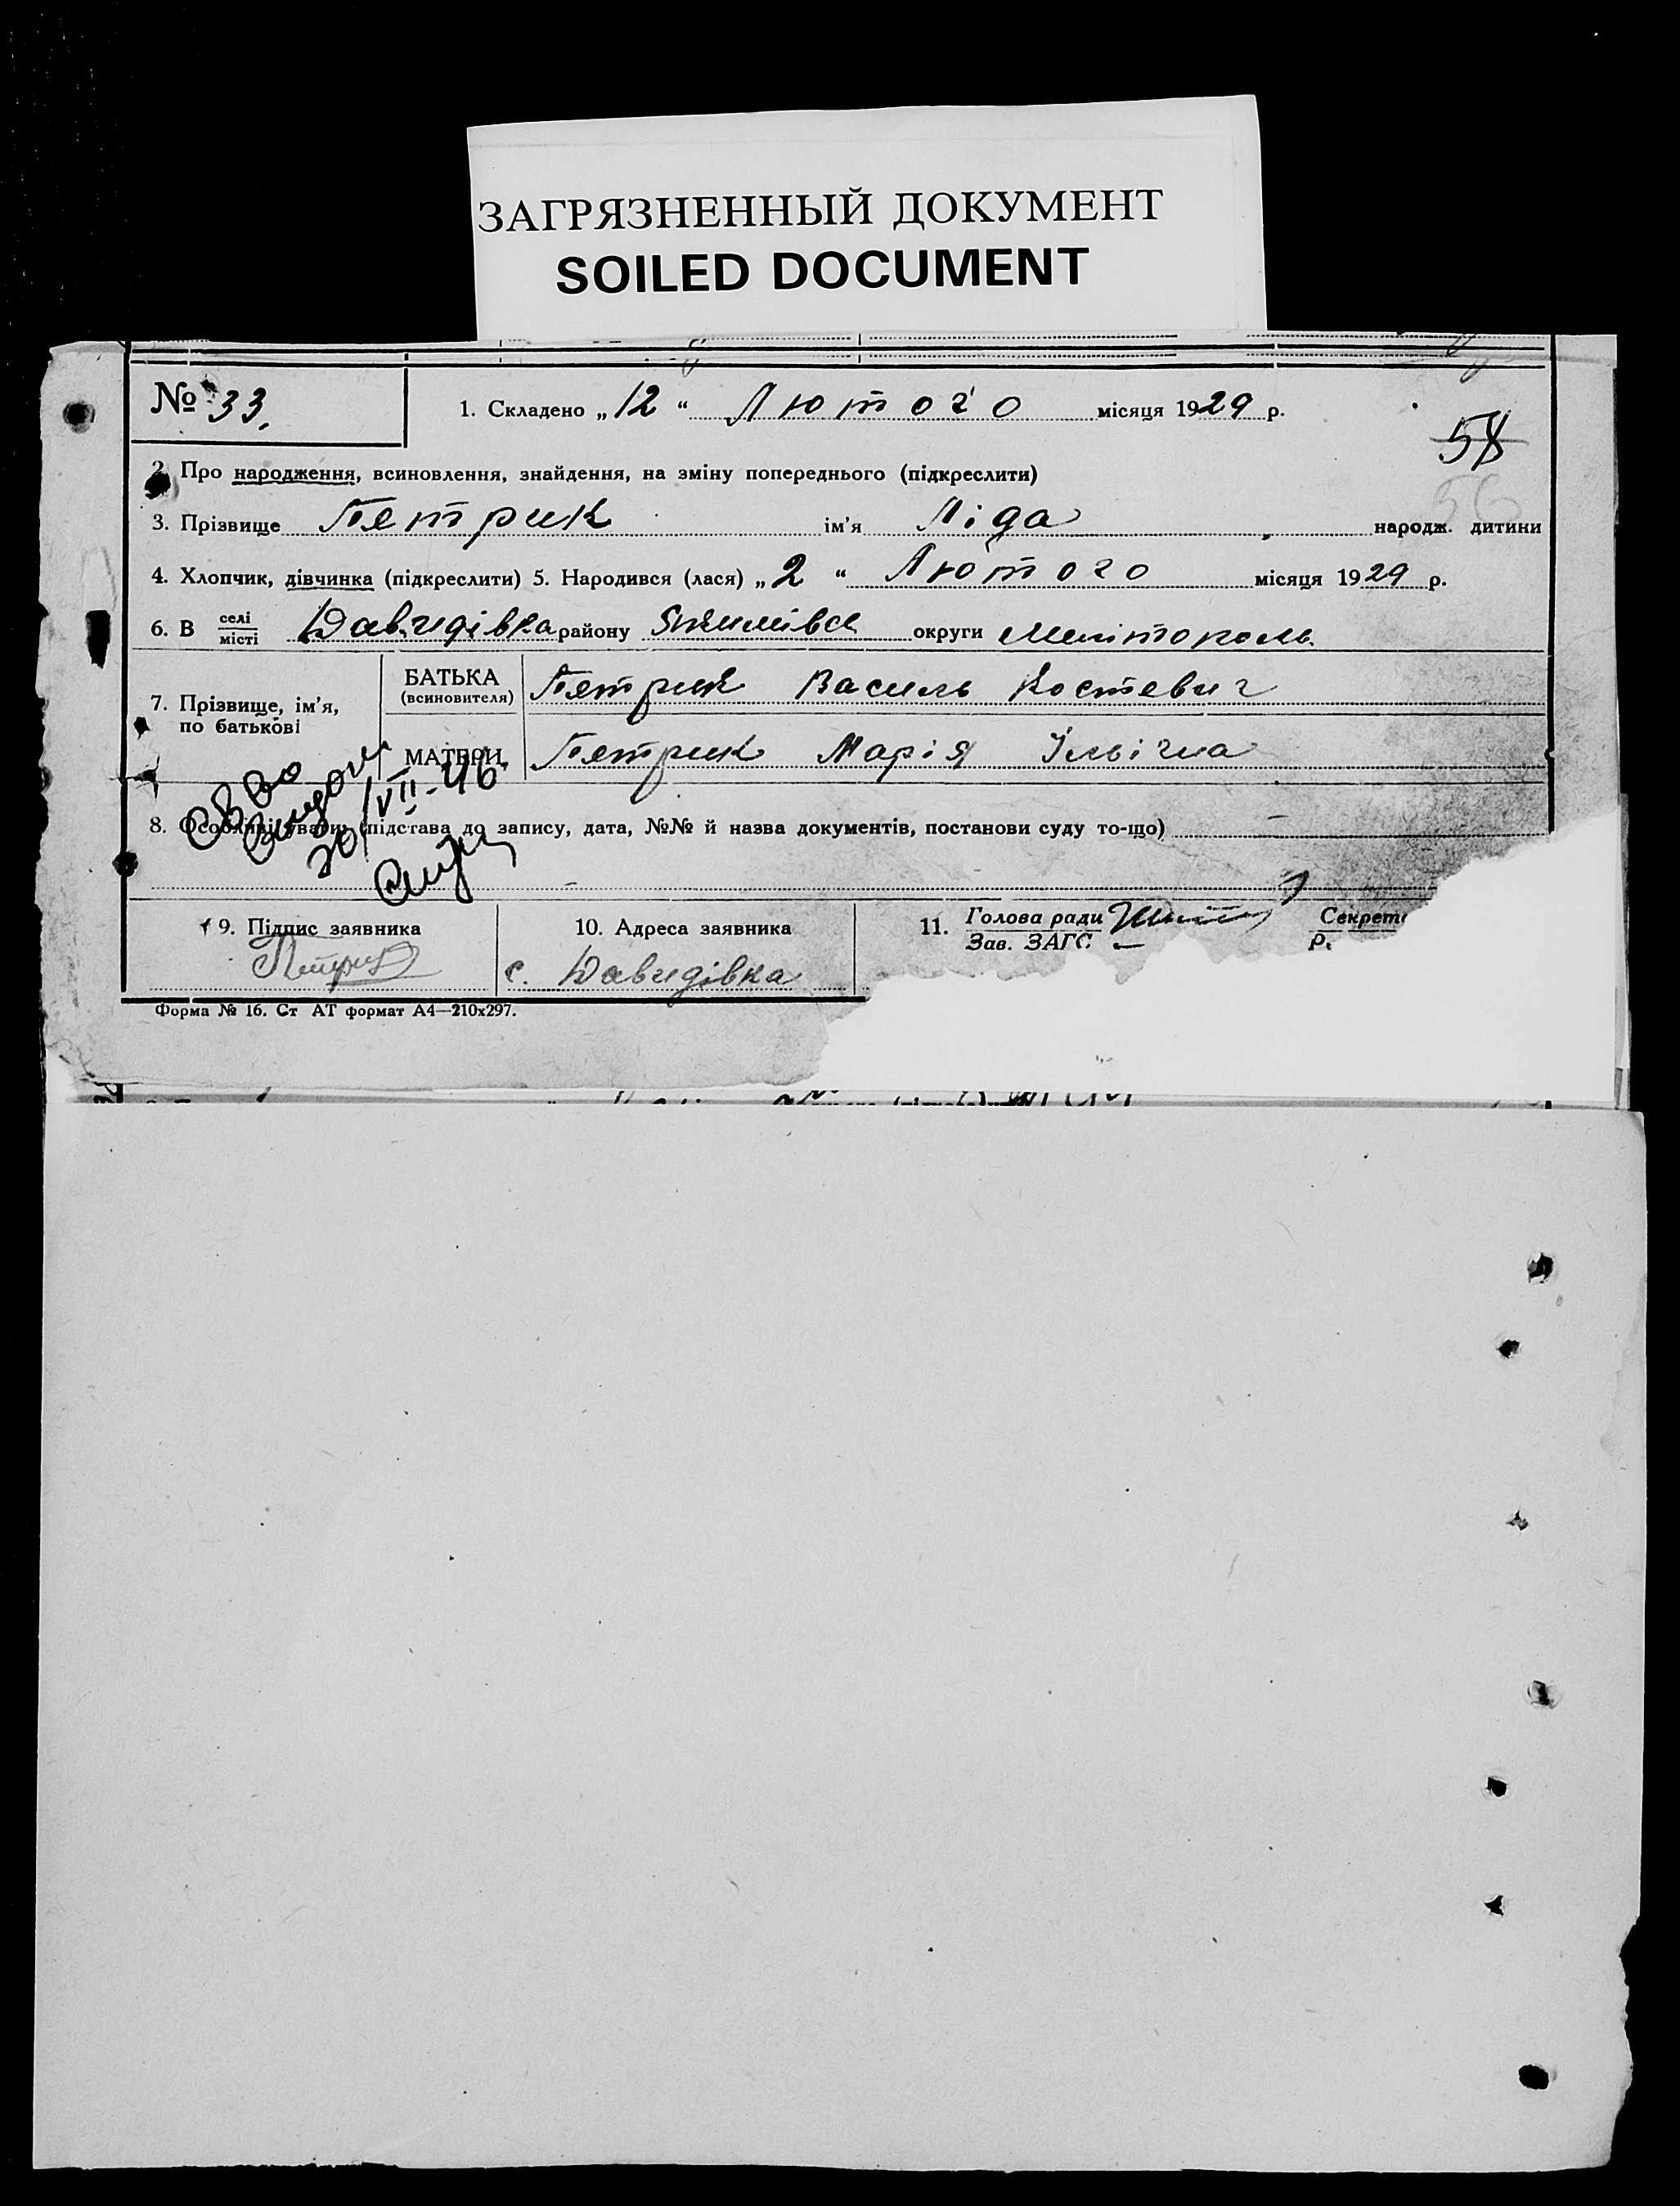 ЗАГРЯЗНЕННЫЙ ДОКУМЕНТ
SOILED DOCUMENT
№ 33.
1. Складено „12“ Лютого місяця 1929 р.
58
56
2. Про народження, всиновлення, знайдення, на зміну попереднього (підкреслити)
3. Прізвище Петрик ім’я Ліда народж. дитини
4. Хлопчик, дівчинка (підкреслити) 5. Народився (лася) „2“ Лютого місяця 1929 р.
6. В селі місті Давидівка району округи Мелітополь
7. Прізвище, ім’я, по батькові
БАТЬКА (всиновителя) Петрик Василь Костевич
МАТЕРИ Петрик Марія Ільічна
8. Особливі уваги (підстава до запису, дата, №№ й назва документів, постанови суду то-що)
св во
видан
20/VII-46
9. Підпис заявника
Петрик
10. Адреса заявника
с. Давидівка
11. Голова ради
Зав. ЗАГС
Секрет
Р.
Форма № 16. Ст АТ формат А4—210х297.